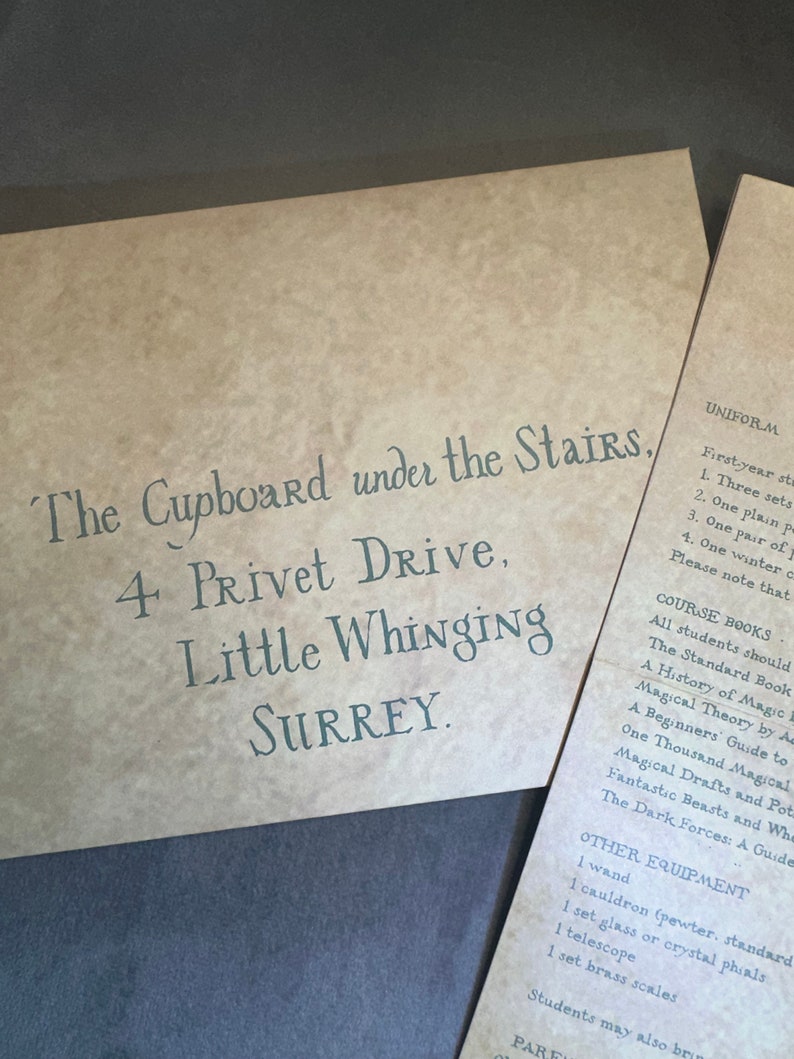 The Cupboard under the Stairs,
4 Privet Drive,
Little Whinging
SURREY.
UNIFORM
First-year
1. Three sets
2. One plain
3. One pair of
4. One winter
Please note that
COURSE BOOKS
All students should
The Standard Book
A History of Magic
Magical Theory by
A Beginners' Guide to
One Thousand Magical
Magical Drafts and
Fantastic Beasts and
The Dark Forces: A Guide
OTHER EQUIPMENT
1 wand
1 cauldron (pewter, standard
1 set glass or crystal phials
1 telescope
1 set brass scales
Students may also